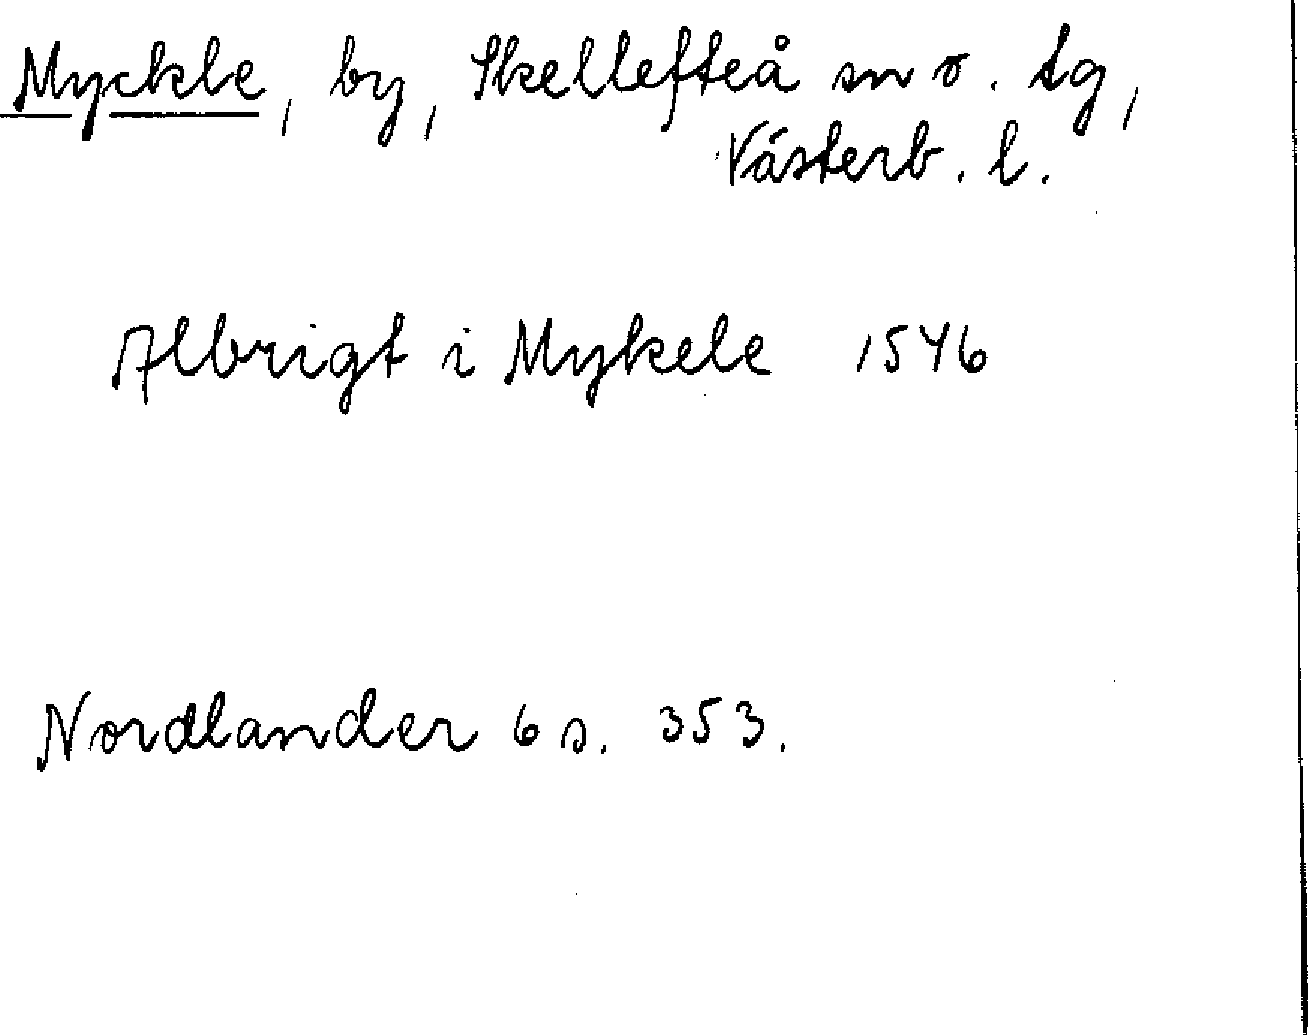 Myckle, by, Skellefteå sn o. tg,
Västerb. l.
Albrigt i Mykele 1546
Nordlander 6 s. 353.